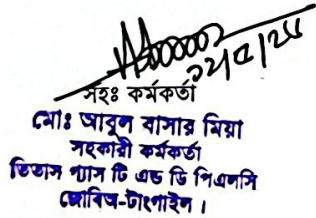 ১২/৫/২৫
সহঃ কর্মকর্তা
মোঃ আবুল বাসার মিয়া
সহকারী কর্মকর্তা
তিতাস গ্যাস টি এন্ড ডি পিএলসি
জোবিঅ-টাংগাইল।